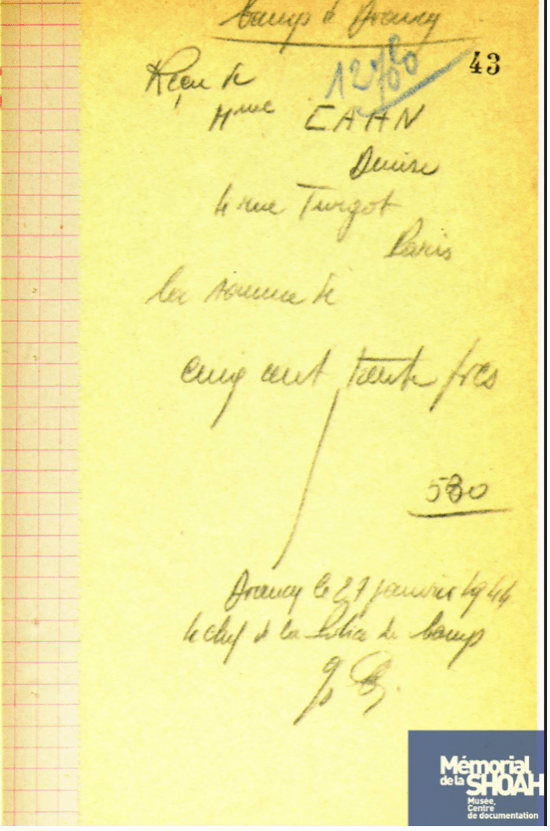 Camp de Drancy
12780
43
Reçu de
Mme CAHN
Denise
4 rue Turgot
Paris
la somme de
cinq cent trente frcs
530
Drancy le 27 janvier 1944
le chef de la Police du Camp
Mémorial
de la SHOAH
Musée,
Centre
de documentation